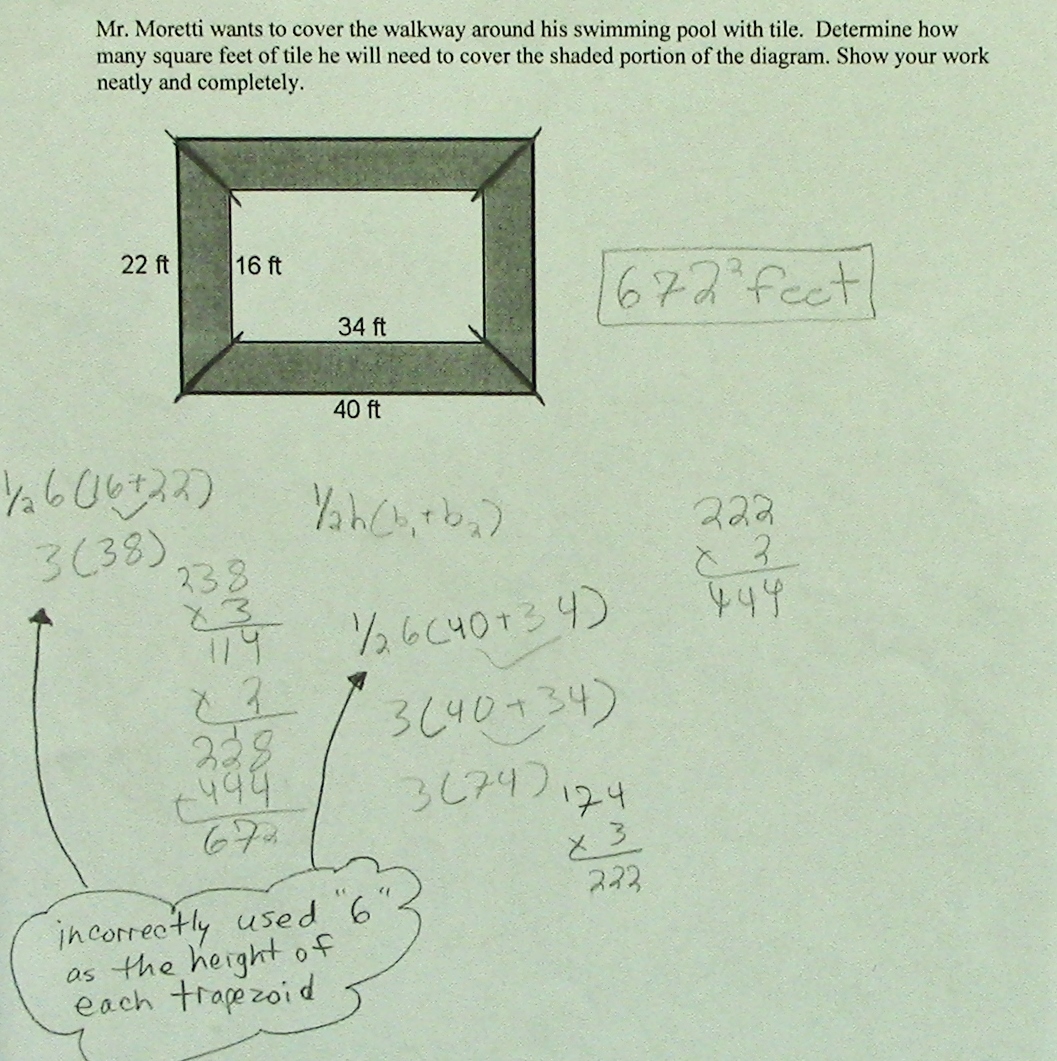 Mr. Moretti wants to cover the walkway around his swimming pool with tile. Determine how
many square feet of tile he will need to cover the shaded portion of the diagram. Show your work
neatly and completely.
22 ft
16 ft
34 ft
40 ft
672² feet
½ 6 (16+22)
3 (38)
²38
x 3
114
x 2
228
+444
672
½h(b₁+b₂)
½ 6(40+34)
3(40+34)
3(74)
¹74
x 3
222
222
x 2
444
incorrectly used "6"
as the height of
each trapezoid